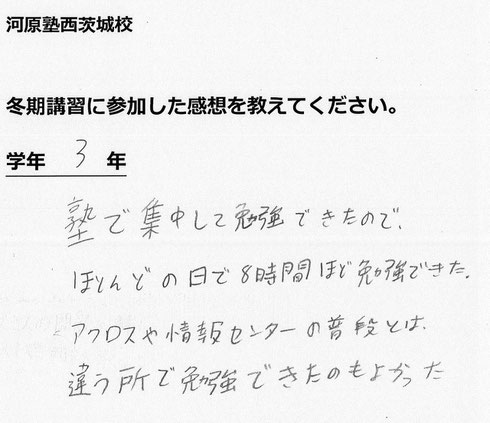 河原塾西茨城校
冬期講習に参加した感想を教えてください。
学年 3 年
塾で集中して勉強できたので、
ほとんどの日で8時間ほど勉強できた。
アクロスや情報センターの普段とは、
違う所で勉強できたのもよかった